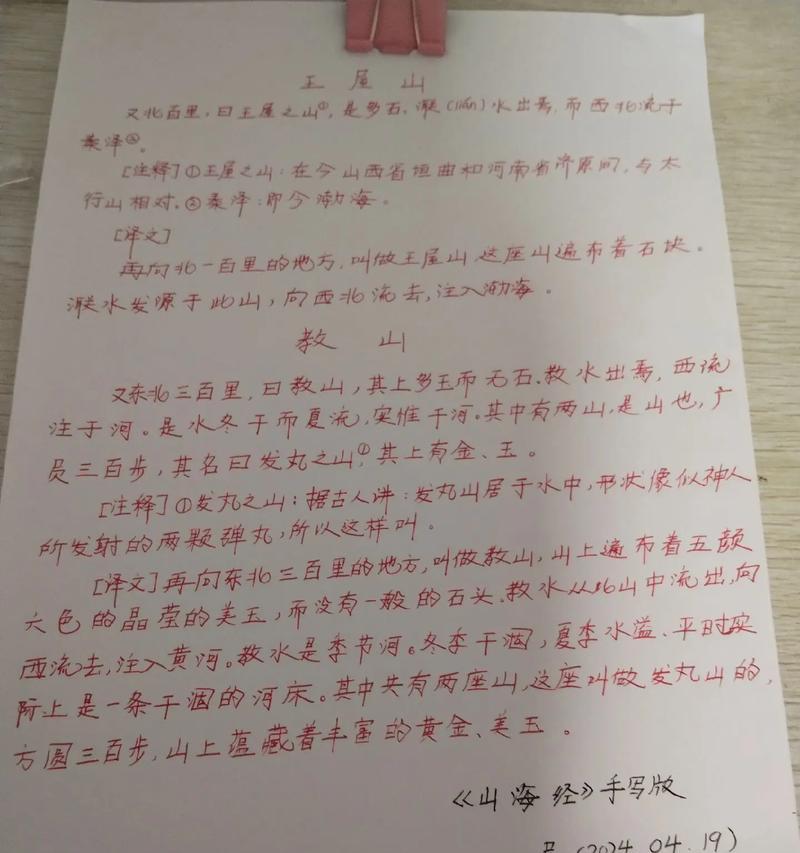 王屋山
又北百里，曰王屋之山①，是多石。㶌(lián)水出焉，而西北流于
泰泽②。
[注释]①王屋之山：在今山西省垣曲和河南省济原间，与太
行山相对。②泰泽：即今渤海。
[译文]
再向北一百里的地方，叫做王屋山，这座山遍布着石块。
㶌水发源于此山，向西北流去，注入渤海。
教山
又东北三百里，曰教山，其上多玉而无石。教水出焉，西流
注于河。是水冬干而夏流，实惟干河。其中有两山，是山也，广
员三百步，其名曰发丸之山①，其上有金、玉。
[注释]①发丸之山：据古人讲：发丸山居于水中，形状像似神人
所发射的两颗弹丸，所以这样叫。
[译文]再向东北三百里的地方，叫做教山，山上遍布着五颜
六色的晶莹的美玉，而没有一般的石头。教水从此山中流出，向
西流去，注入黄河。教水是季节河。冬季干涸，夏季水溢、平时实
际上是一条干涸的河床。其中共有两座山，这座叫做发丸山的，
方圆三百步，山上蕴藏着丰富的黄金、美玉。
《山海经》手写版
(2024.04.19)